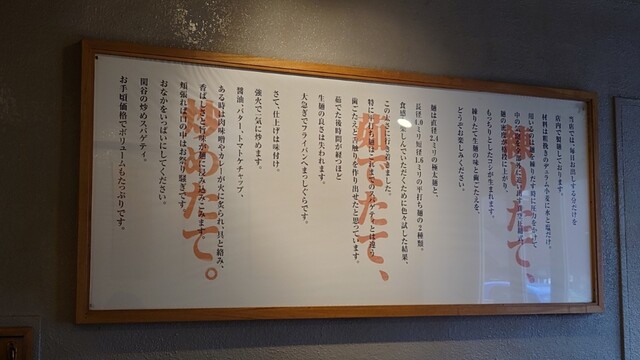 当店では、毎日お出しする分だけを
店内で製麺しております。
材料は粗挽きのデュラム小麦に水と塩だけ。
麺の密度が格段に上がり、
もっちりとしたコシが生まれます。
練りたて生麺の味と歯ごたえを、
どうぞお楽しみください。
麺は直径2.4ミリの極太麺と、
長径4.0ミリ短径1.6ミリの平打ち麺の2種類。
食感を楽しんでいただくために色々試した結果、
この太さに行き着きました。
特に平打ち麺はこれまでのスパゲティとは違う
歯ごたえと舌触りを作り出せたと思っています。
茹でた後時間が経つほど
生麺の良さは失われます。
大急ぎでフライパンへまっしぐらです。
さて、仕上げは味付け。
強火で一気に炒めます。
醤油、バター、トマトケチャップ、
ある時は肉味噌やカレーが火に炙られ、具と絡み、
香ばしさと旨味が麺に浸み込みこみます。
頬張れば口の中はお祭り騒ぎです。
おなかをいっぱいにしてください。
関谷の炒めスパゲティ。
お手頃価格でボリュームもたっぷりです。
たて、
たて、
炒めたて。